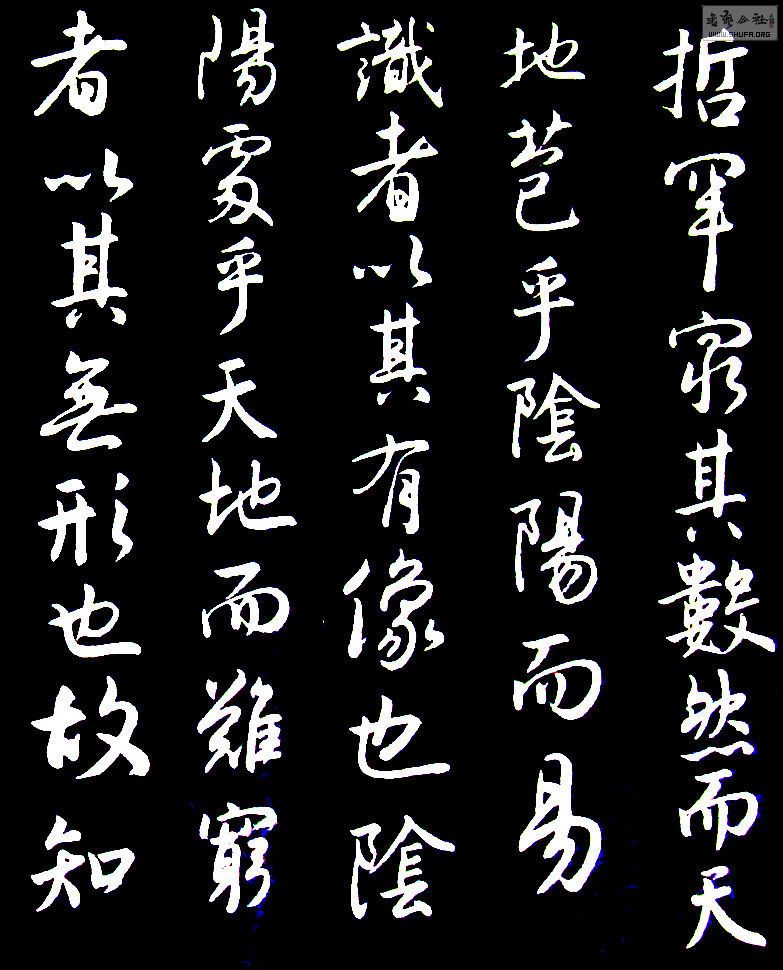 書藝公社
WWW.SHUFA.ORG
哲罕窮其數然而天
地苞乎陰陽而易
識者以其有像也陰
陽處乎天地而難窮
者以其無形也故知